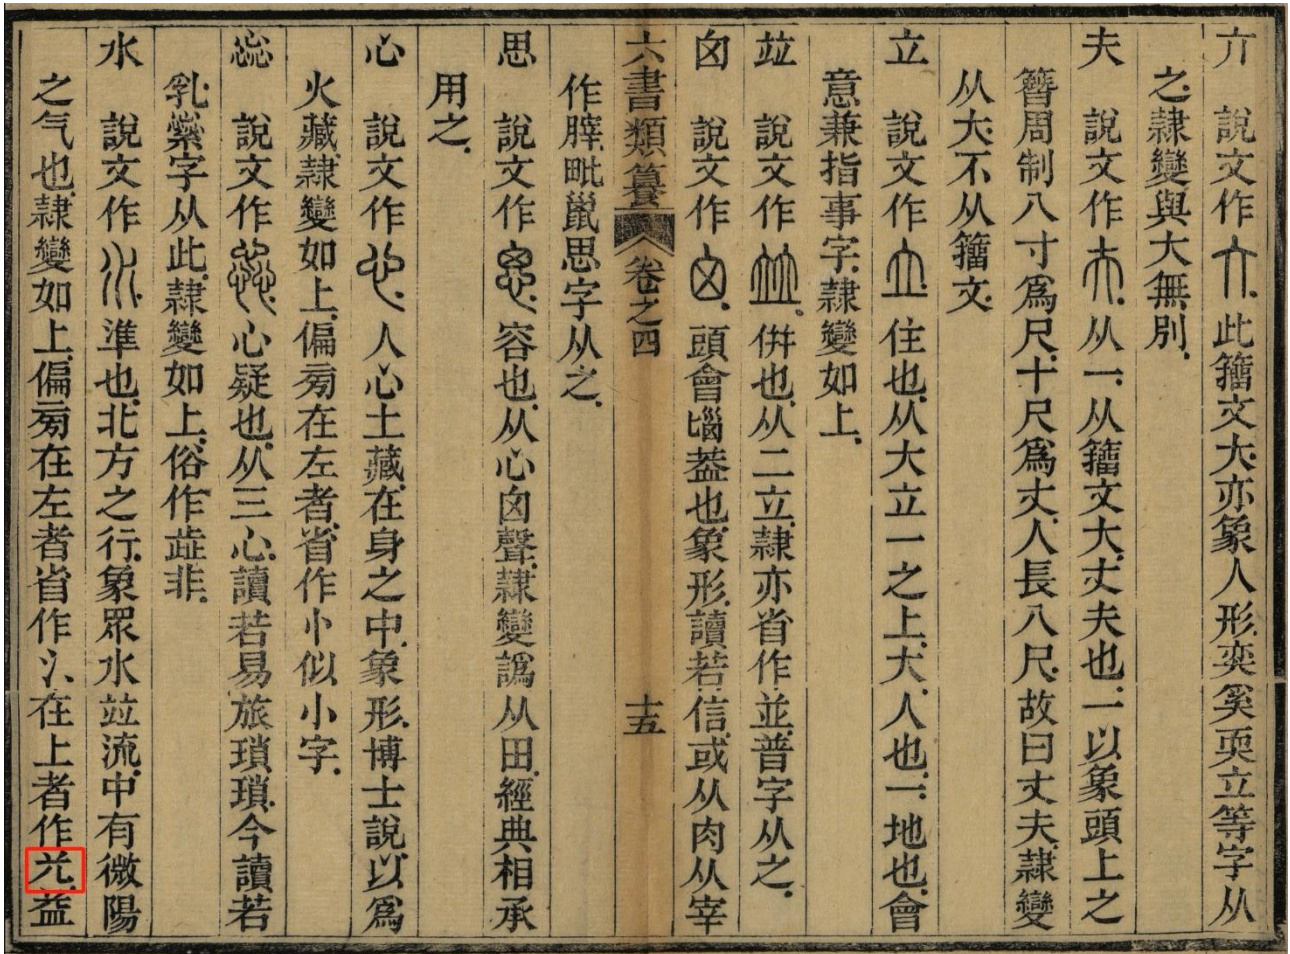 亣說文作亣此籒文大亦象人形奕奚耎立等字从
之隸變與大無別
夫說文作夫从一从籒文大丈夫也一以象頭上之
簪周制八寸爲尺十尺爲丈人長八尺故曰丈夫隸變
从大不从籒文
立說文作立住也从大立一之上大人也一地也會
意兼指事字隸變如上
竝說文作竝併也从二立隸亦省作並普字从之
囟說文作囟頭會𡿺葢也象形讀若信或从肉从宰
六書類纂卷之四十五
作毗鬛思字从之
思說文作思容也从心囟聲隸變譌从田經典相承
用之
心說文作心人心土藏在身之中象形博士說以爲
火藏隸變如上偏㫄在左者省作忄似小字
惢說文作惢心疑也从三心讀若易旅瑣瑣今讀若
乳繠字从此隸變如上俗作非
水說文作水準也北方之行象眾水竝流中有微陽
之气也隸變如上偏㫄在左者省作氵在上者作益